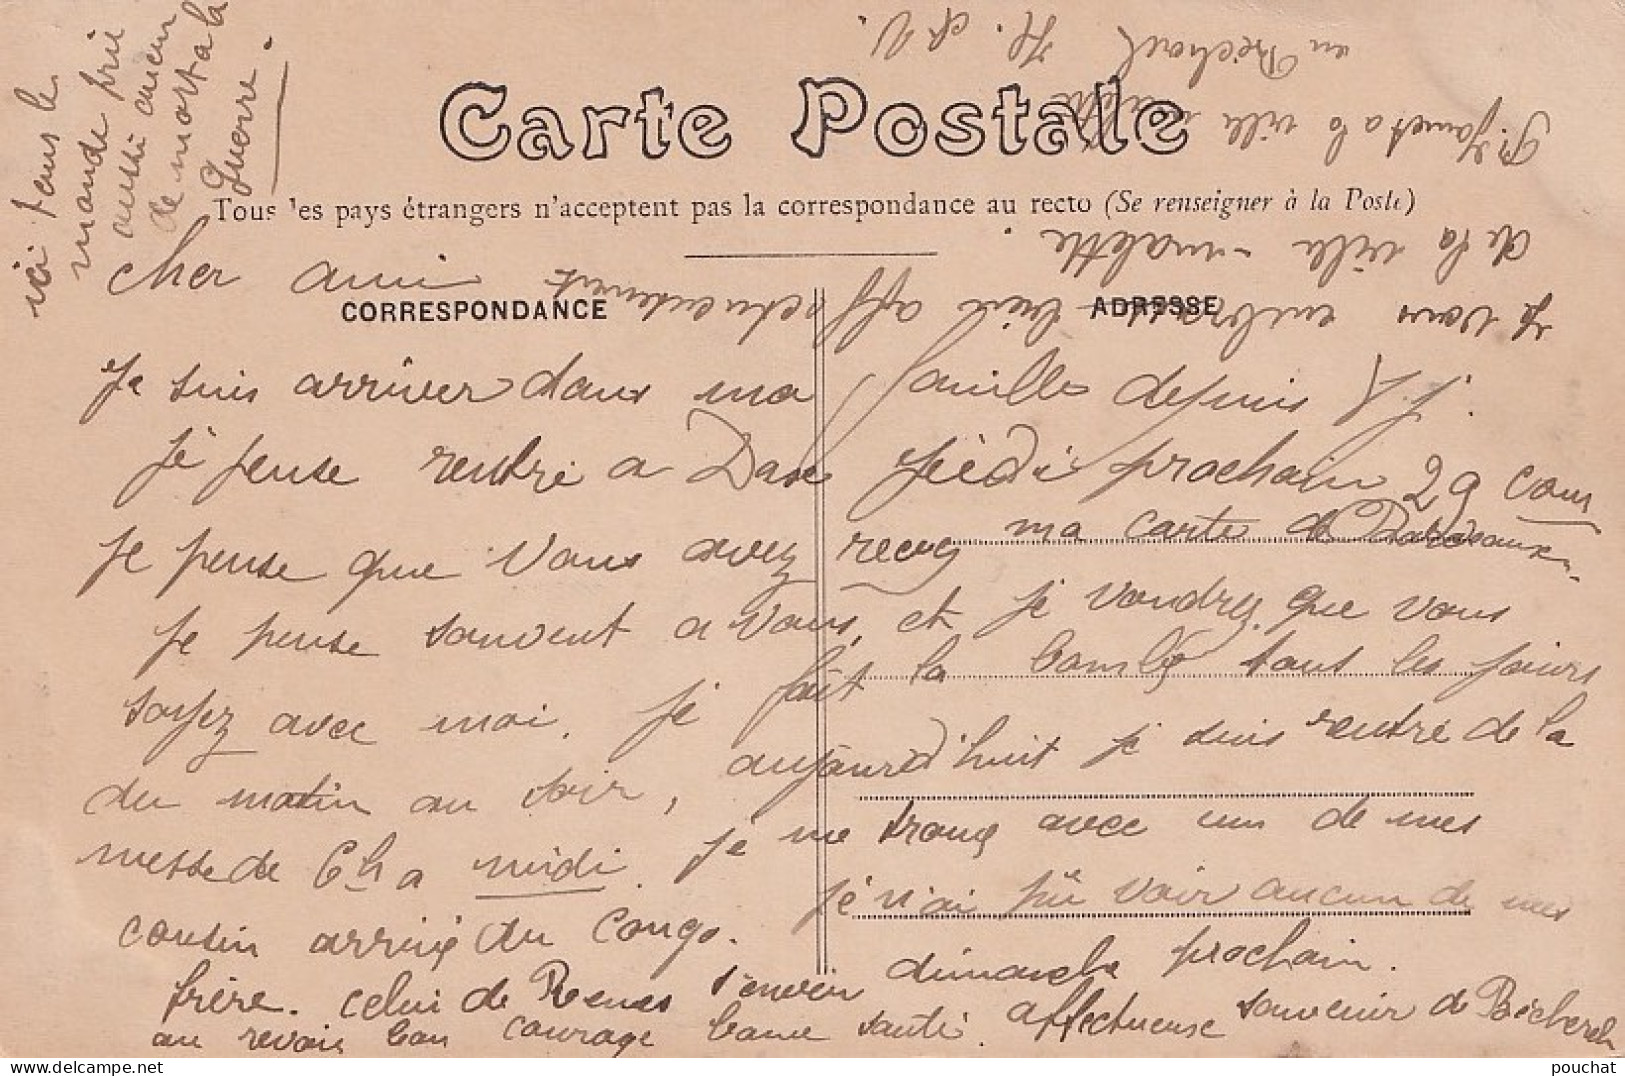 ici tous le
monde prie
aussi aucun
de mort a la
Guerre.
Carte Postale
Tous les pays étrangers n'acceptent pas la correspondance au recto (Se renseigner à la Poste)
CORRESPONDANCE
ADRESSE
cher ami
Je suis arriver dans ma famille depuis
Je pense rentré a jeèdi prochain 29 cour
je pense que vous avez recus ma carte de
je pense souvent a vous, et je voudrez que vous
soyez avec moi. je fait la tous les jours
du matin au soir, aujourd'huit je suis rentré de la
messe de 6h a midi. je me trouve avec un de mes
cousin arrivé du Congo. je n'ai pû voir aucun de mes
frère. celui de Rennes s'envien dimanche prochain.
au revoir bon courage bonne santé. affectueuse souvenir de
je vous embrasse bien affectueusement
de la ville-malette.
P. a la ville malette
en H. et V.
pouchat